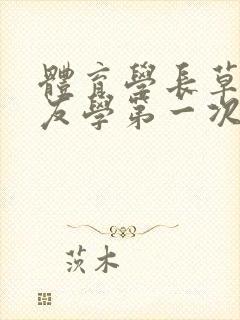 體育學長草
友學第一次
茨木